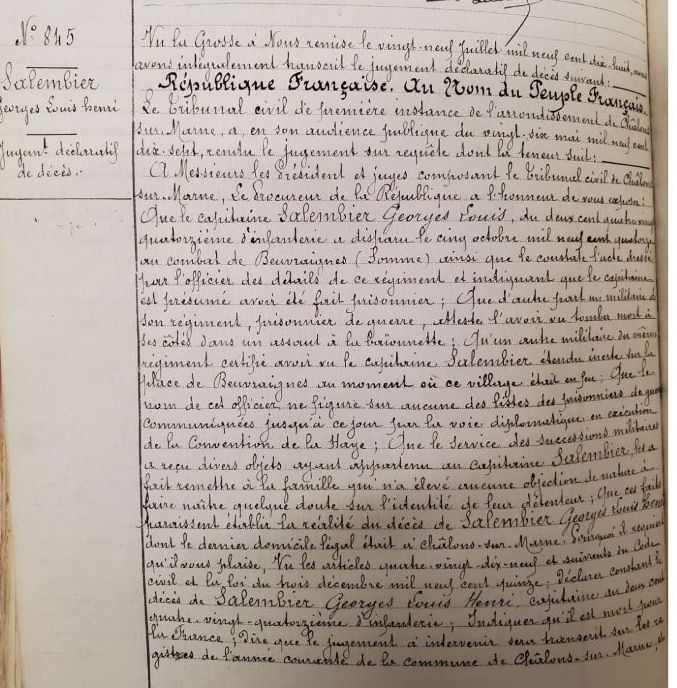 N° 845
Salembier
Georges Louis Henri
Jugem.t déclaratif
de décès.
Vu la Grosse à Nous remise le vingt-neuf Juillet mil neuf cent dix-huit, nous
avons intégralement transcrit le jugement déclaratif de décès suivant:
République Française. Au Nom du Peuple Français.
Le Tribunal civil de première instance de l'arrondissement de Châlons
sur-Marne, a, en son audience publique du vingt-six mai mil neuf cent
dix-sept, rendu le jugement sur requête dont la teneur suit:
A Messieurs les Président et juges composant le Tribunal civil de Châlons
sur-Marne, Le Procureur de la République a l'honneur de vous exposer:
Que le capitaine Salembier Georges Louis, du deux cent quatre vingt
quatorzième d'infanterie a disparu le cinq octobre mil neuf cent quatorze
au combat de Beuvraignes (Somme) ainsi que le constate l'acte dressé
par l'officier des détails de ce régiment et indiquant que le capitaine
est présumé avoir été fait prisonnier; Que d'autre part un militaire de
son régiment, prisonnier de guerre, atteste l'avoir vu tomber mort à
ses côtés dans un assaut à la baïonnette; Qu'un autre militaire du même
régiment certifie avoir vu le capitaine Salembier étendu inerte sur la
place de Beuvraignes au moment où ce village était en feu; Que le
nom de cet officier ne figure sur aucune des listes des prisonniers de guerre
communiquées jusqu'à ce jour par la voie diplomatique en exécution
de la Convention de la Haye; Que le service des successions militaires
a reçu divers objets ayant appartenu au capitaine Salembier, les a
fait remettre à la famille qui n'a élevé aucune objection de nature à
faire naître quelque doute sur l'identité de leur détenteur; Que ces faits
paraissent établir la réalité du décès de Salembier Georges Louis Henri
dont le dernier domicile légal était à Châlons-sur-Marne. Pourquoi il requiert
qu'il vous plaise, Vu les articles quatre-vingt-dix-neuf et suivants du Code
civil et la loi du trois décembre mil neuf cent quinze. Déclarer constant le
décès de Salembier Georges Louis Henri, capitaine au deux cent
quatre-vingt-quatorzième d'infanterie; Indiquer qu'il est mort pour
la France; Dire que le jugement à intervenir sera transcrit sur les re
gistres de l'année courante de la commune de Châlons-sur-Marne; et